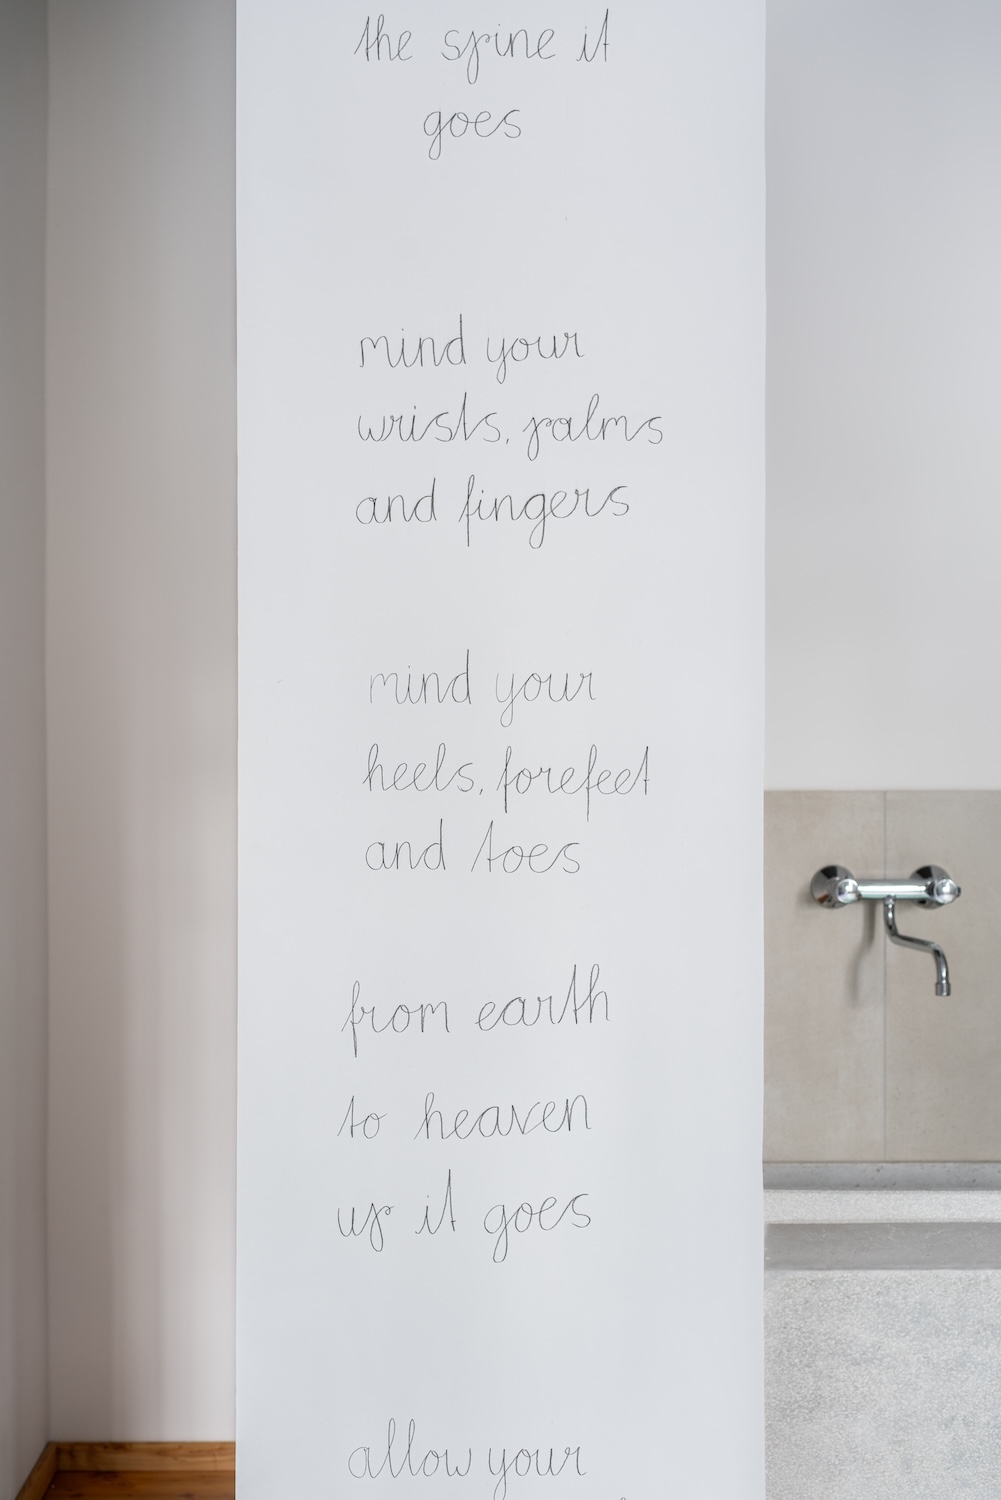 the spine it
goes
mind your
wrists, palms
and fingers
mind your
heels, forefeet
and toes
from earth
to heaven
up it goes
allow your